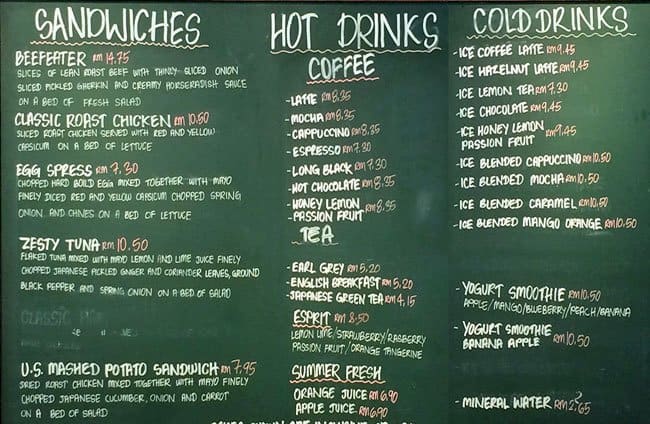 SANDWICHES
BEEFEATER RM 14.75
SLICES OF LEAN ROAST BEEF WITH THINLY SLICED ONION
SLICED PICKLED GHERKIN AND CREAMY HORSERADISH SAUCE
ON A BED OF FRESH SALAD
CLASSIC ROAST CHICKEN RM 10.50
SLICED ROAST CHICKEN SERVED WITH RED AND YELLOW
CAPSICUM ON A BED OF LETTUCE
EGG SPRESS RM 7.30
CHOPPED HARD BOILD EGG MIXED TOGETHER WITH MAYO
FINELY DICED RED AND YELLOW CAPSICUM CHOPPED SPRING
ONION AND CHIVES ON A BED OF LETTUCE
ZESTY TUNA RM 10.50
FLAKED TUNA MIXED WITH MAYO LEMON AND LIME JUICE FINELY
CHOPPED JAPANESE PICKLED GINGER AND CORIANDER LEAVES, GROUND
BLACK PEPPER AND SPRING ONION ON A BED OF SALAD
CLASSIC
U.S. MASHED POTATO SANDWICH RM 7.95
DRIED ROAST CHICKEN MIXED TOGETHER WITH MAYO FINELY
CHOPPED JAPANESE CUCUMBER, ONION AND CARROT
ON A BED OF SALAD
HOT DRINKS
COFFEE
- LATTE RM 8.35
- MOCHA RM 8.35
- CAPPUCCINO RM 8.35
- ESPRESSO RM 7.30
- LONG BLACK RM 7.30
- HOT CHOCOLATE RM 8.35
- HONEY LEMON RM 8.35
- PASSION FRUIT
TEA
- EARL GREY RM 5.20
- ENGLISH BREAKFAST RM 5.20
- JAPANESE GREEN TEA RM 4,15
ESPRIT RM 8.50
LEMON LIME/STRAWBERRY/RASBERRY
PASSION FRUIT/ORANGE TANGERINE
SUMMER FRESH
ORANGE JUICE RM 6.90
APPLE JUICE RM 6.90
COLD DRINKS
- ICE COFFEE LATTE RM 9.45
- ICE HAZELNUT LATTE RM 9.45
- ICE LEMON TEA RM 7.30
- ICE CHOCOLATE RM 9.45
- ICE HONEY LEMON RM 9.45
PASSION FRUIT
- ICE BLENDED CAPPUCCINO RM 10.50
- ICE BLENDED MOCHA RM 10.50
- ICE BLENDED CARAMEL RM 10.50
- ICE BLENDED MANGO ORANGE RM 10.50
- YOGURT SMOOTHIE RM 10.50
APPLE/MANGO/BLUEBERRY/PEACH/BANANA
- YOGURT SMOOTHIE
BANANA APPLE RM 10.50
- MINERAL WATER RM 2.65